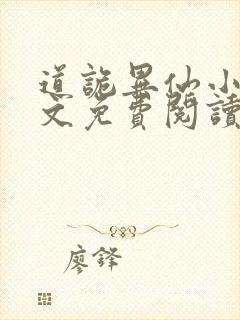 道詭異仙小
文免費閱讀
廖鋒